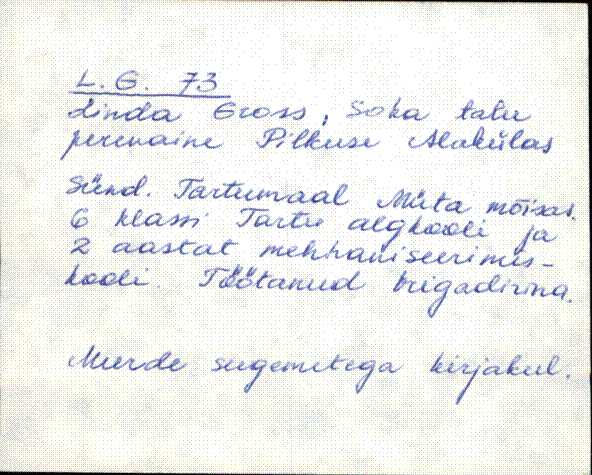 L. G. 73
Linda Gross, Soka talu
perenaine Pilkuse Alakülas
Sünd. Tartumaal Müta mõisas.
6 klassi Tartu algkooli ja
2 aastat mehhaniseerimis-
kooli. Töötanud brigadirina.
Murde sugemetega kirjakeel.